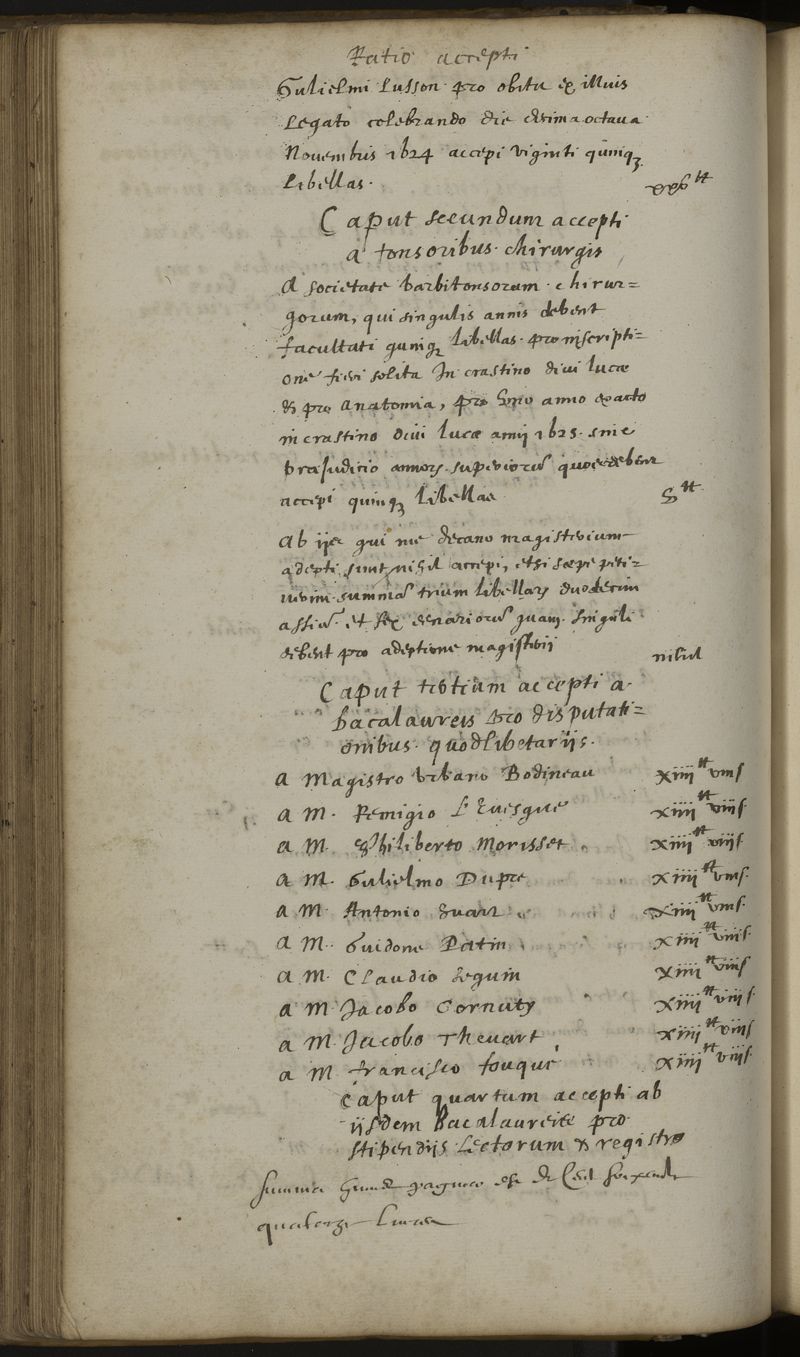 Ratio accepti
Gulielmi Lusson pro obitu ex illius
Legato celebrando die decima octava
Novembris 1624 accepi viginti quinq
Libellas. xxv tt
Caput secundum accepti
a tonsoribus chirurgis
A societate barbitonsorum chirur=
gorum, qui singulis annis debent
facultati quinq libellas pro inscripti=
one fieri solita In crastino divi lucæ
& pro anatomia, pro uno anno exacto
in crastino divi lucæ anni 1625. sine
præjudicio annorum superiorum quos debent
accepi quinq libellas 5 tt
Ab ijs qui me decano magisterium
adepti sunt nihil accepi, etsi sæpe peti=
iverim summam trium libellarum duodecim
assium et sex denariorum quam singuli
debent pro adeptione magisterii nihil
Caput tertium accepti a
bacalaureis pro disputati=
onibus quodlibetariis.
A Magistro Urbano Bodineau xiiii tt viiis
A M. Remigio L'Evesque xiiii tt viiis
A M. Philiberto Morisset xiiii tt viiis
A M. Gulielmo Dupre xiiii tt viiis
A M Antonio xiiii tt viiis
A M. Guidone Patin xiiii tt viiis
A M. Claudio Seguin xiiii tt viiis
A M Jacobo Cornuty xiiii tt viiis
A M Jacobo Thevart xiiii tt viiis
A M francisco fouque xiiii tt viiis
Caput quartum accepti ab
iisdem Bacalaureis pro
stipendijs Lectorum & registro
Summa paginæ est